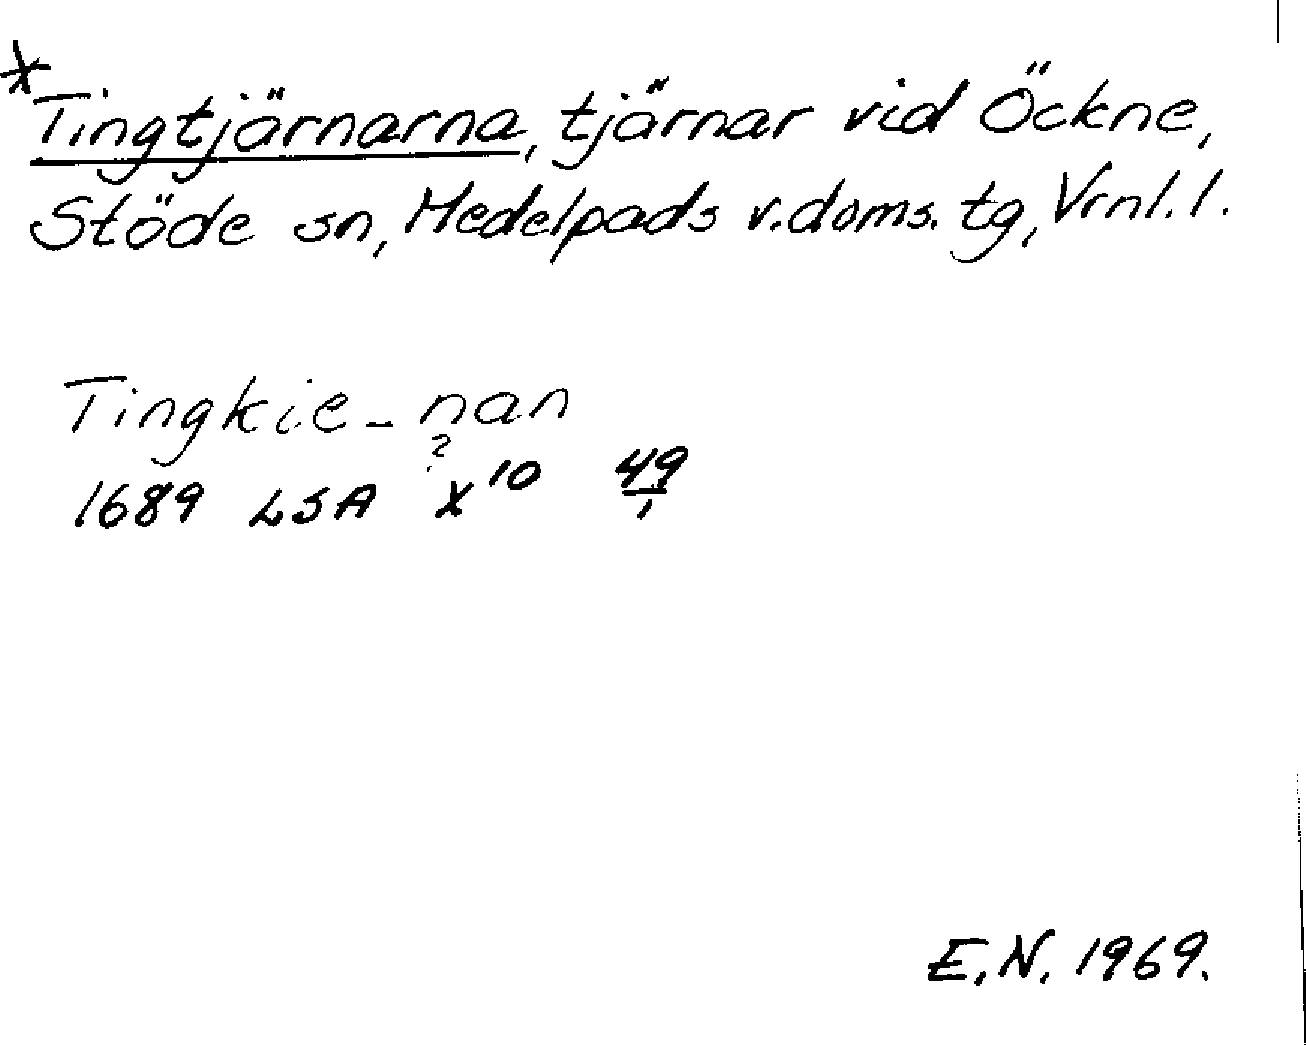 *Tingtjärnarna, tjärnar vid Öckne,
Stöde sn, Medelpads v.doms. tg, Vrnl. l.
Tingkie-nan
?
1689 LSA X10 49/1
E.N. 1969.